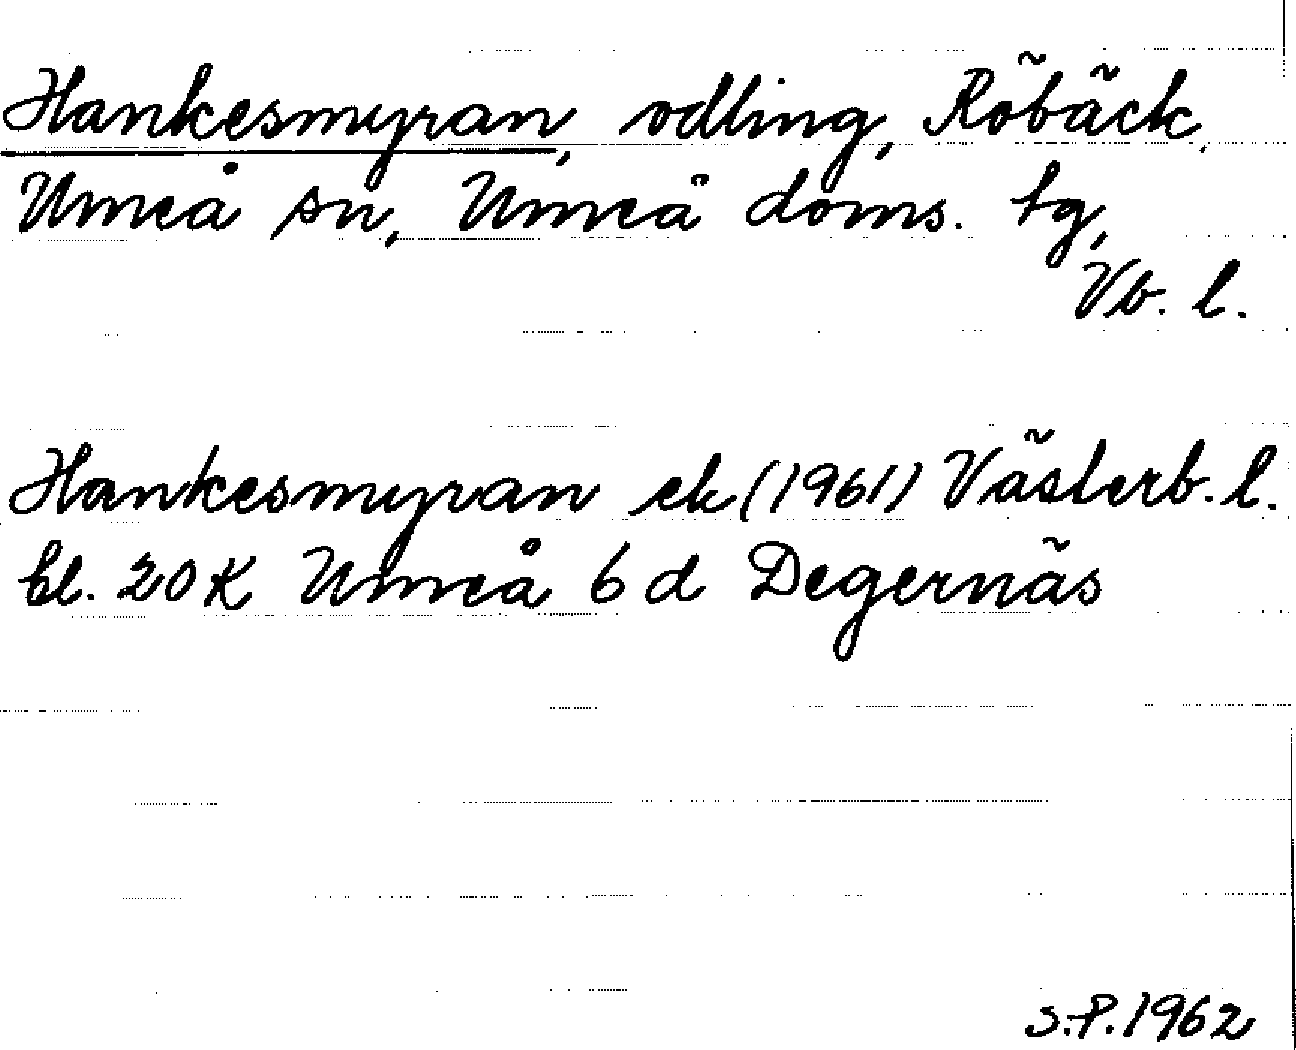 Hankesmyran, odling, Röbäck,
Umeå sn, Umeå doms. tg,
Vb. l.
Hankesmyran ek (1961) Västerb. l.
bl. 20 K Umeå 6 d Degernäs
S.P. 1962